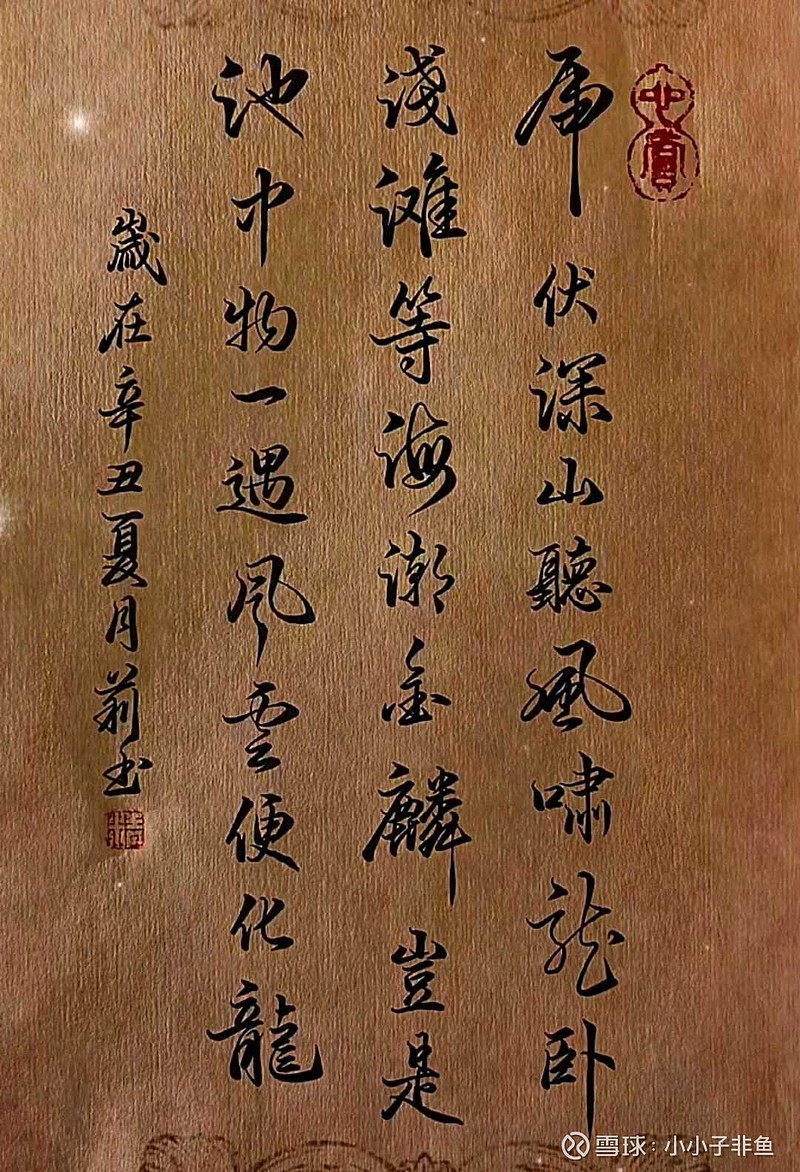 虎伏深山聽風嘯龙卧
淺滩等海潮金麟豈是
池中物一遇风雲便化龍
歲在辛丑夏月莉书
雪球：小小子非鱼